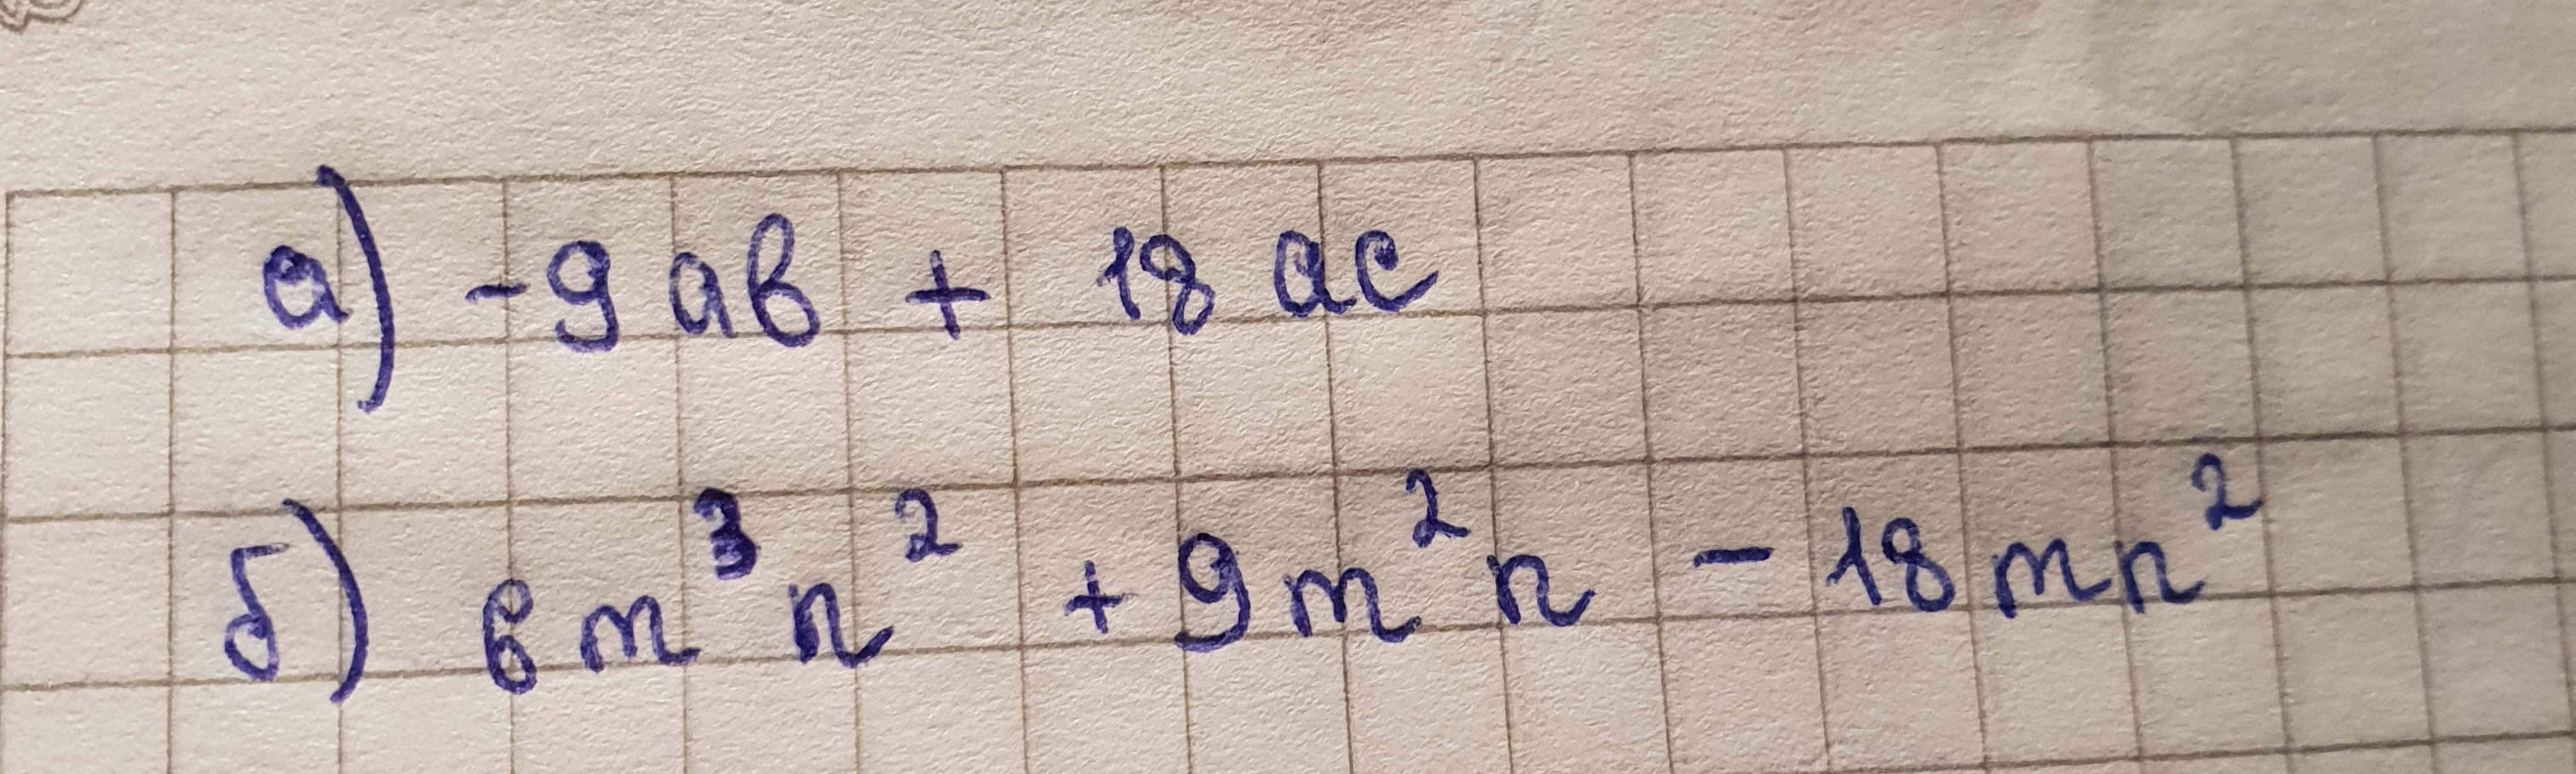 а) -9ав + 18ас
б) 6m³n² + 9m²n - 18mn²